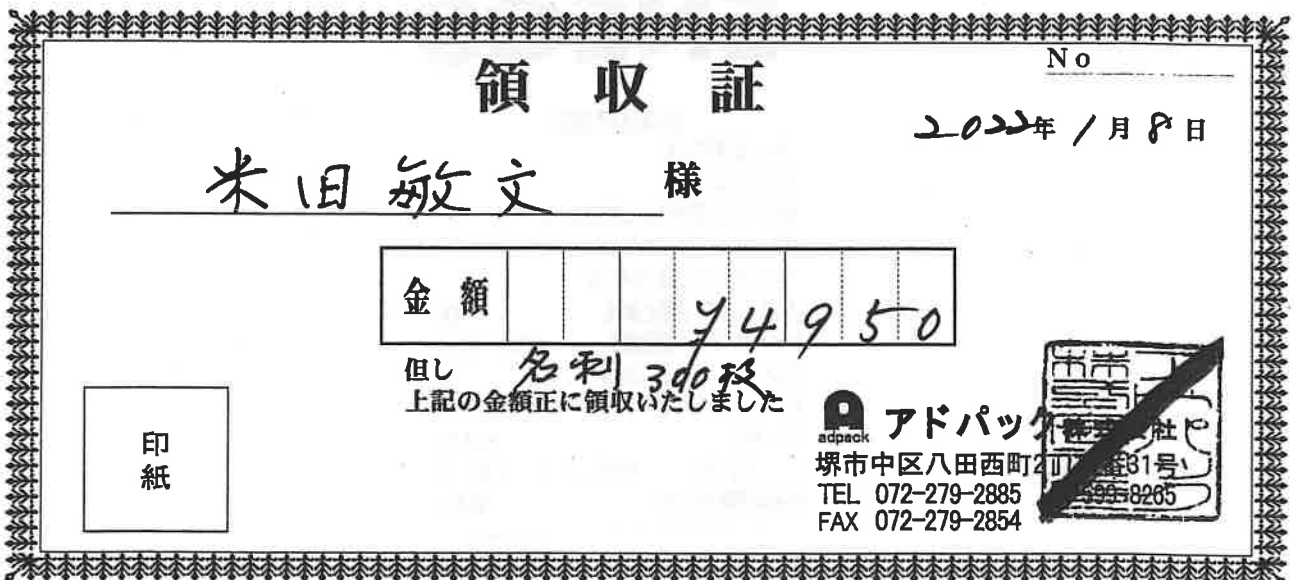 領収証
No
2022年1月8日
米田敏文 様
金額 ¥4950
但し 名刺 300枚
上記の金額正に領収いたしました
印紙
adpack アドパック株式会社
堺市中区八田西町2丁
31号
TEL 072-279-2885 599-8265
FAX 072-279-2854